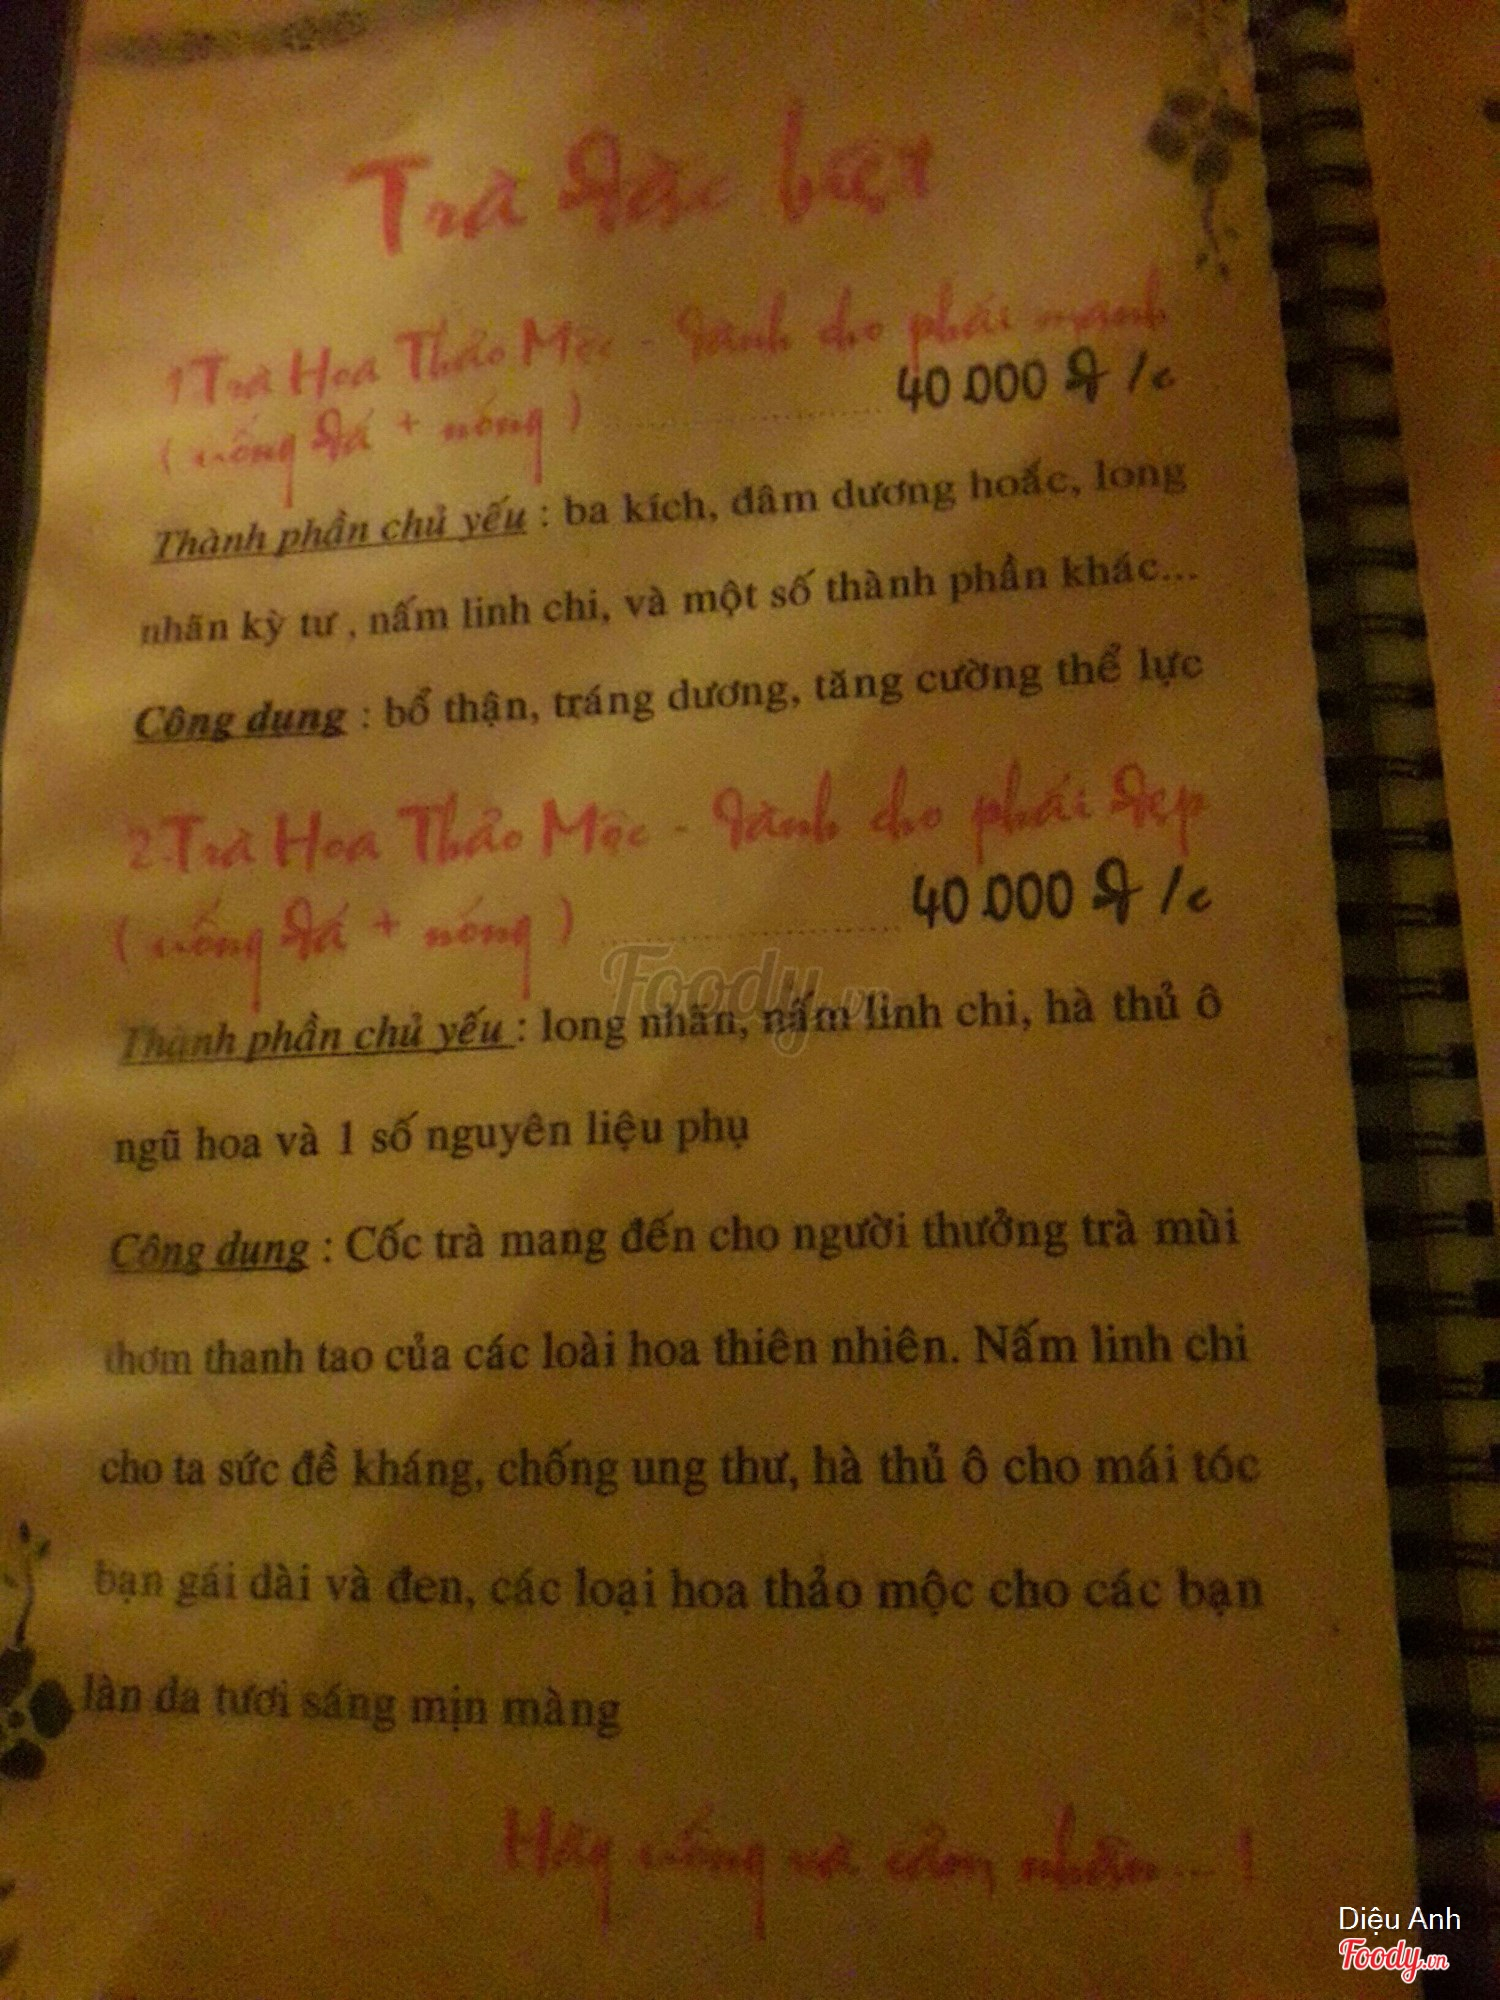 Trà đặc biệt
1 Trà Hoa Thảo Mộc - dành cho phái mạnh
( uống đá + nóng ) ........................ 40.000 đ / c
Thành phần chủ yếu : ba kích, dâm dương hoắc, long
nhãn kỳ tư , nấm linh chi, và một số thành phần khác...
Công dụng : bổ thận, tráng dương, tăng cường thể lực
2.Trà Hoa Thảo Mộc - dành cho phái đẹp
( uống đá + nóng ) ........................ 40.000 đ / c
Thành phần chủ yếu : long nhãn, nấm linh chi, hà thủ ô
ngũ hoa và 1 số nguyên liệu phụ
Công dụng : Cốc trà mang đến cho người thưởng trà mùi
thơm thanh tao của các loài hoa thiên nhiên. Nấm linh chi
cho ta sức đề kháng, chống ung thư, hà thủ ô cho mái tóc
bạn gái dài và đen, các loại hoa thảo mộc cho các bạn
làn da tươi sáng mịn màng
Hãy uống và cảm nhận ... !
Foody.vn
Diệu Anh
Foody.vn